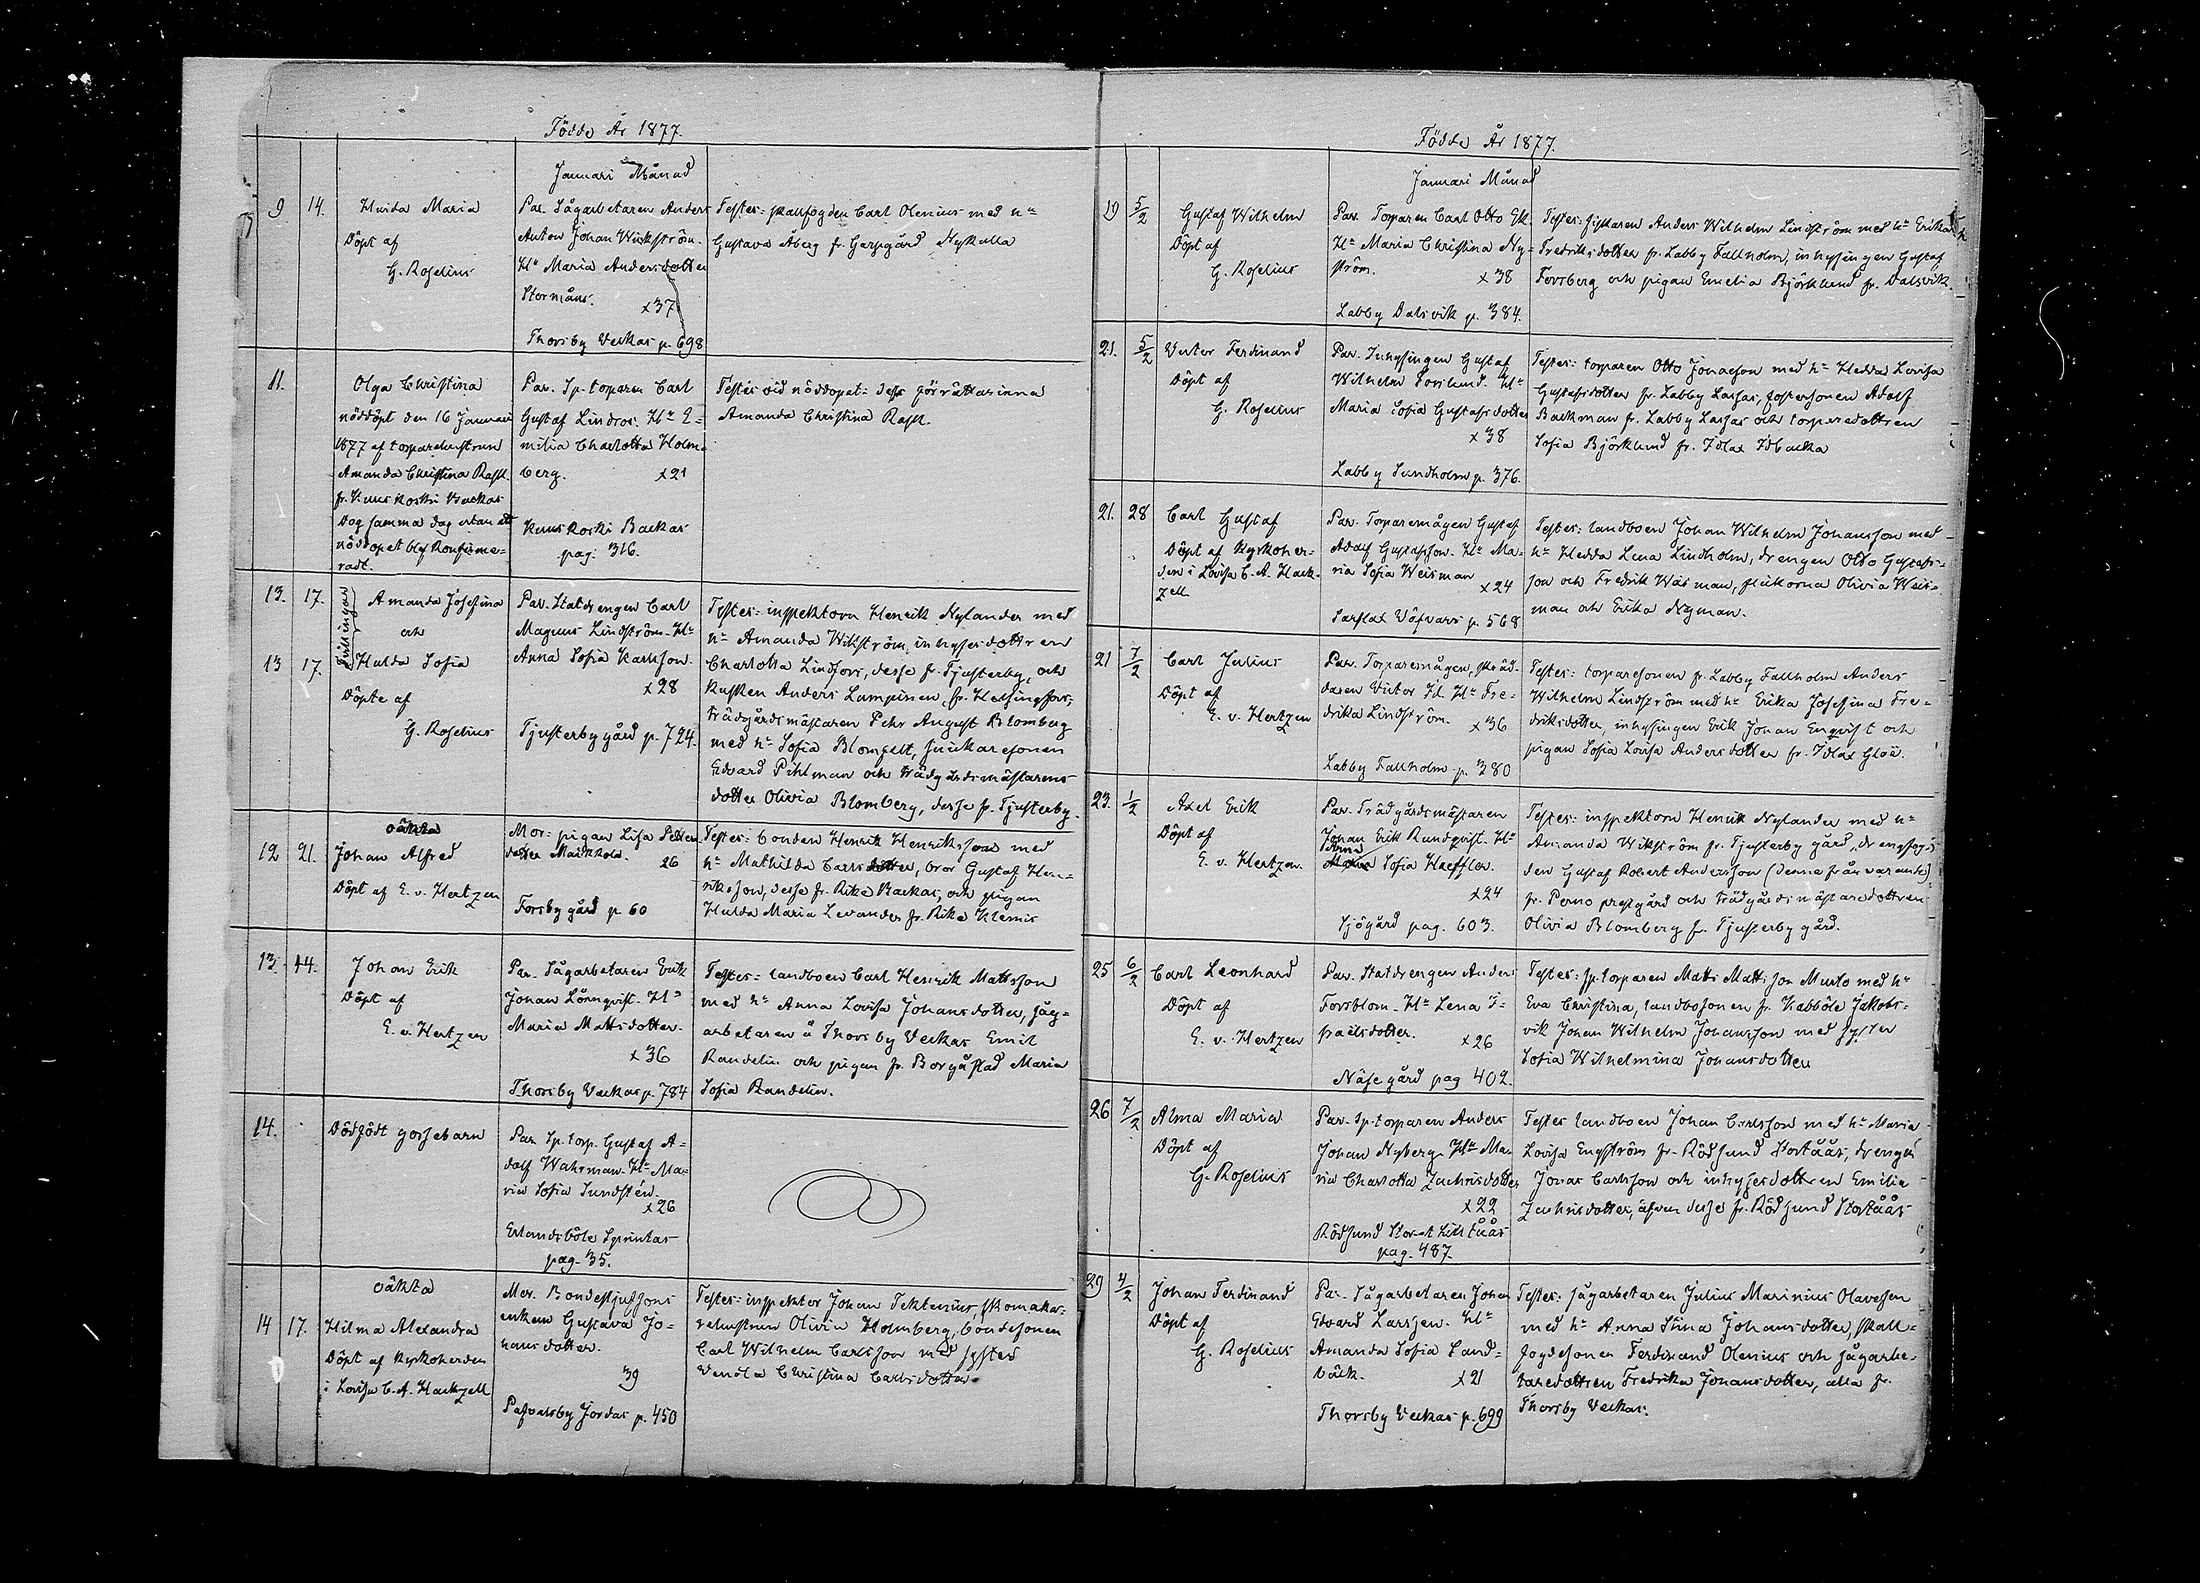 Födde År 1877.
Januari Månad
9 14. Hulda Maria
Döpt af
G. Roselius
Par. Sågarbetaren Anders
Anton Johan Wickström.
Hu Maria Andersdotter
Stormåns. x37
Thorsby Veckas p. 698
Testes: skallfogden Carl Olenius med hu
Gustava Åberg fr. Gerpgård Nykulla
11. Olga Christina
nöddöpt den 16 Januari
1877 af torparehustrun
Amanda Christina Rask
fr. Kuuskoski Backas
Dog samma dag utan att
nöddopet blef konfirme-
radt.
Par. Sp. torparen Carl
Gustaf Lindros. Hu E-
milia Charlotta Holm-
berg. x21
Kuuskoski Backas
pag. 316.
Testes vid nöddopet: dess förrättarinna
Amanda Christina Rask.
13. 17. Tvillingar Amanda Josefina
och
13 17. Hulda Sofia
Döpte af
G. Roselius
Par. Statdrengen Carl
Magnus Lindström. Hu
Anna Sofia Karlsson.
x28
Tjusterby gård p. 724.
Testes: inspektorn Henrik Nylander med
hu Amanda Wikström, inhysesdottren
Charlotta Lindfors, desse fr. Tjusterby, och
kusken Anders Lampinen fr. Helsingfors;
trädgårdsmästaren Pehr August Blomberg
med hu Sofia Blomfelt, snickaresonen
Edvard Pihlman och trädgårdsmästarens
dotter Olivia Blomberg, desse fr. Tjusterby.
oäkta
12 21. Johan Alfred
Döpt af E. v. Hertzen
Mor: pigan Lisa Petters
dotter Markkola. 26
Forsby gård p. 60
Testes: bonden Henrik Henriksson med
hu Mathilda Carlsdotter, bror Gustaf Hen-
riksson, desse fr. Rike Backas, och pigan
Hulda Maria Levander fr. Rike Klemis
13. 14. Johan Erik
Döpt af
E. v. Hertzen
Par. Sågarbetaren Erik
Johan Lönnqvist. Hu
Maria Mattsdotter.
x36
Thorsby Veckas p. 784
Testes: landboen Carl Henrik Mattsson
med hu Anna Lovisa Johansdotter, såg-
arbetaren å Thorsby Veckas Emil
Randelin och pigan fr. Borgå stad Maria
Sofia Randelin.
14. Dödfödt gossebarn
Par. Sp. torp. Gustaf A-
dolf Wahrman. Hu Ma-
ria Sofia Sundstén.
x26
Erlandsböle Sprintas
pag. 35.
oäkta
14 17. Hilma Alexandra
Döpt af Kyrkoherden
i Lovisa C. A. Hackzell
Mor. Bondesytjugsons
enkan Gustava Jo-
hansdotter.
39
Pafvalsby Jordas p. 450
Testes: inspektor Johan Tektenius, skomaka-
rehustrun Olivia Holmberg, bondesonen
Carl Wilhelm Carlsson med syster
Vendla Christina Carlsdotter.
Födde År 1877.
Januari Månad
19 5/2 Gustaf Wilhelm
Döpt af
G. Roselius
Par. Torparen Carl Otto Ek.
Hu Maria Christina Ny-
ström. x38
Labby Dalsvik p. 384.
Testes: fiskaren Anders Wilhelm Lindström med hu Erika
Fredriksdotter fr. Labby Fallholm, inhysingen Gustaf
Forsberg och pigan Emelia Björklund fr. Dalsvik.
21. 5/2 Victor Ferdinand
Döpt af
G. Roselius
Par. Inhysingen Gustaf
Wilhelm Forslund. Hu
Maria Sofia Gustafsdotter
x38
Labby Sundholm p. 376.
Testes: torparen Otto Jonasson med hu Hedda Lovisa
Gustafsdotter fr. Labby Lassas, fostersonen Adolf
Backman fr. Labby Lassas och torparedottren
Sofia Björklund fr. Idlax Idbacka
21. 28 Carl Gustaf
Döpt af Kyrkoher-
den i Lovisa C. A. Hack-
zell
Par. Torparemågen Gustaf
Adolf Gustafsson. Hu Ma-
ria Sofia Weisman
x24
Sarflax Väfvars p. 568
Testes: landboen Johan Wilhelm Johansson med
hu Hedda Lena Lindholm, drengen Otto Gustafs-
son och Fredrik Weisman, flickorna Olivia Weis-
man och Erika Nyman.
21 7/2 Carl Julius
Döpt af
E. v. Hertzen
Par. Torparemågen, skräd-
daren Victor Id. Hu Fre-
drika Lindström. x36
Labby Fallholm p. 380
Testes: torparesonen fr. Labby Fallholm Anders
Wilhelm Lindström med hu Erika Josefina Fre-
driksdotter, inhysingen Erik Johan Enqvist och
pigan Sofia Lovisa Andersdotter fr. Idlax Gloë.
23. 1/2 Axel Erik
Döpt af
E. v. Hertzen
Par. Trädgårdsmästaren
Johan Erik Rundqvist. Hu
Anna Sofia Haeffler.
x24
Sjögård pag. 603.
Testes: inspektorn Henrik Nylander med hu
Amanda Wikström fr. Tjusterby gård, drengfog-
den Gustaf Robert Andersson (denne frånvarande)
fr. Perno prestgård och trädgårdsmästaredottren
Olivia Blomberg fr. Tjusterby gård.
25 6/2 Carl Leonhard
Döpt af
E. v. Hertzen
Par. Statdrengen Anders
Forsblom. Hu Lena I-
sraelsdotter. x26
Näse gård pag 402.
Testes: sp. torparen Matts Mattsson Murto med hu
Eva Christina, landbosonen fr. Kabböle Jakobs-
vik Johan Wilhelm Johansson med syster
Sofia Wilhelmina Johansdotter
26 7/2 Alma Maria
Döpt af
G. Roselius
Par. Sp. torparen Anders
Johan Nyberg. Hu Ma-
ria Charlotta Zachrisdotter
x22
Rödsund Stor- o. Lilltåås
pag. 487.
Testes landboen Johan Carlsson med hu Maria
Lovisa Engström fr. Rödsund Stortåås, drengen
Jonas Carlsson och inhysesdottren Emilia
Zachrisdotter, äfven desse fr. Rödsund Stortåås
29 4/2 Johan Ferdinand
Döpt af
G. Roselius
Par. Sågarbetaren Johan
Edvard Larssen. Hu
Amanda Sofia Sand-
bäck. x21
Thorsby Veckas p. 699
Testes: sågarbetaren Julius Marinius Olavesen
med hu Anna Stina Johansdotter, skall-
fogdesonen Ferdinand Olenius och sågarbe-
taredottren Fredrika Johansdotter, alla fr.
Thorsby Veckas.